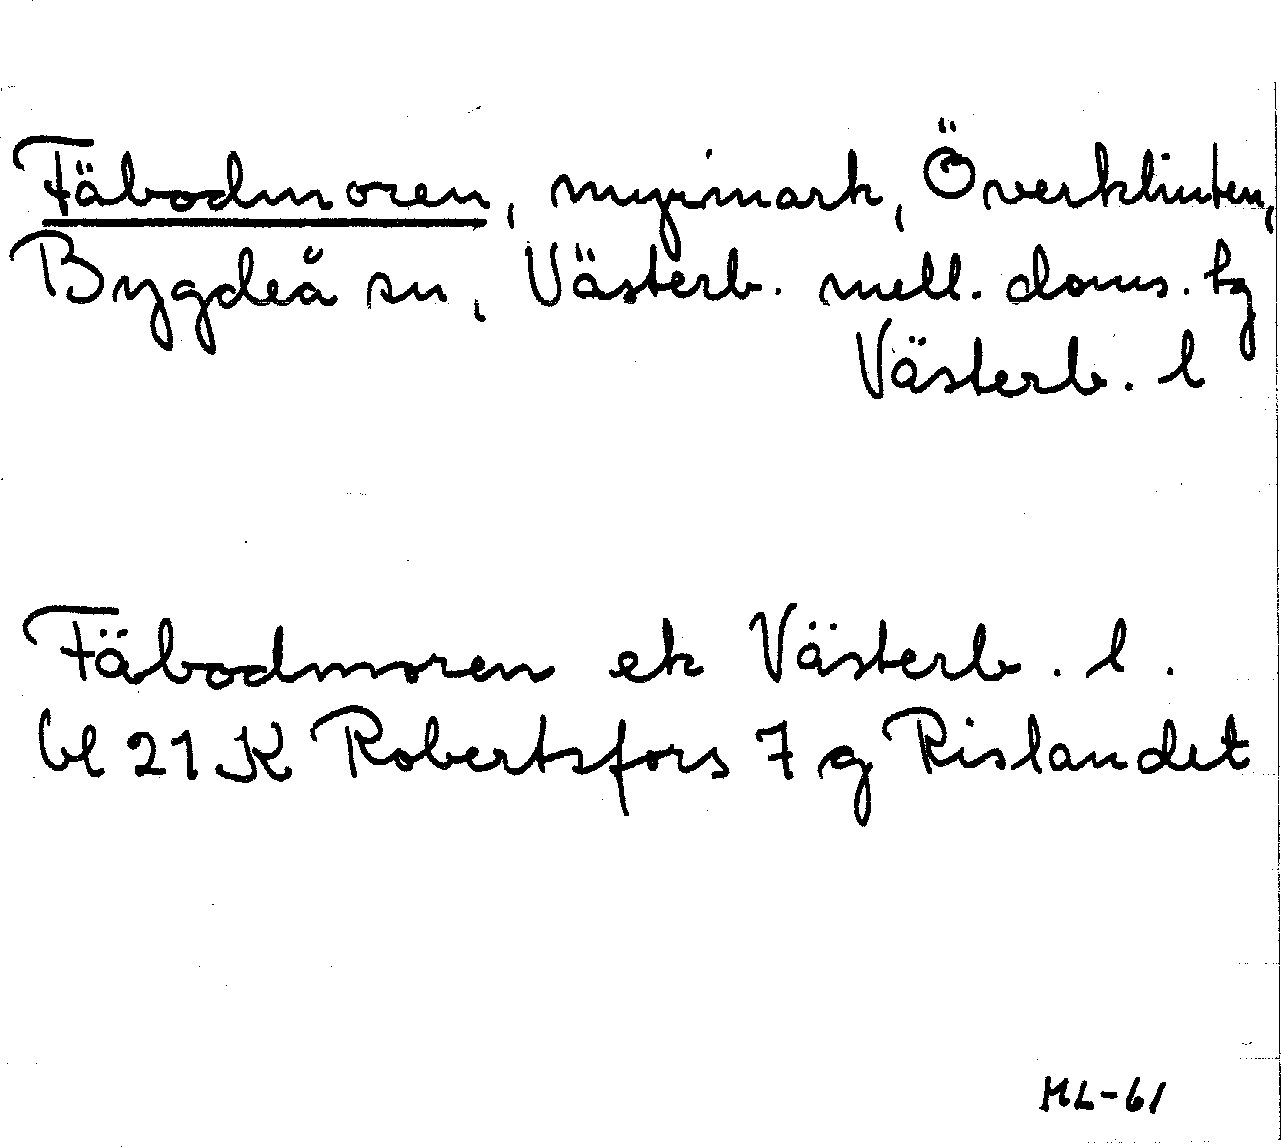 Fäbodmoren, myrmark, Överklinten,
Bygdeå sn, Västerb. mell. doms. tg
Västerb. l
Fäbodmoren ek Västerb. l.
bl 21 K Robertsfors 7 g Rislandet
ML-61